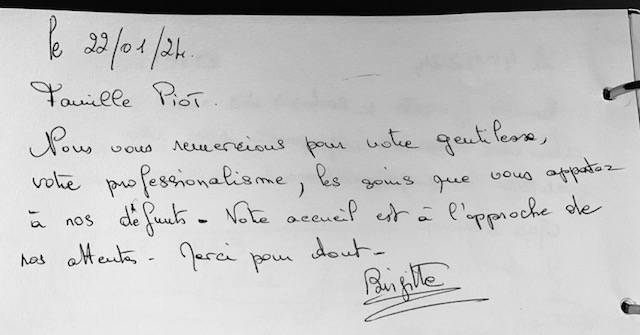 le 22/01/24.
Famille Piot.
Nous vous remercions pour votre gentilesse,
votre professionalisme, les soins que vous apportez
à nos défunts - Votre accueil est à l'approche de
nos attentes - Merci pour tout -
Brigitte